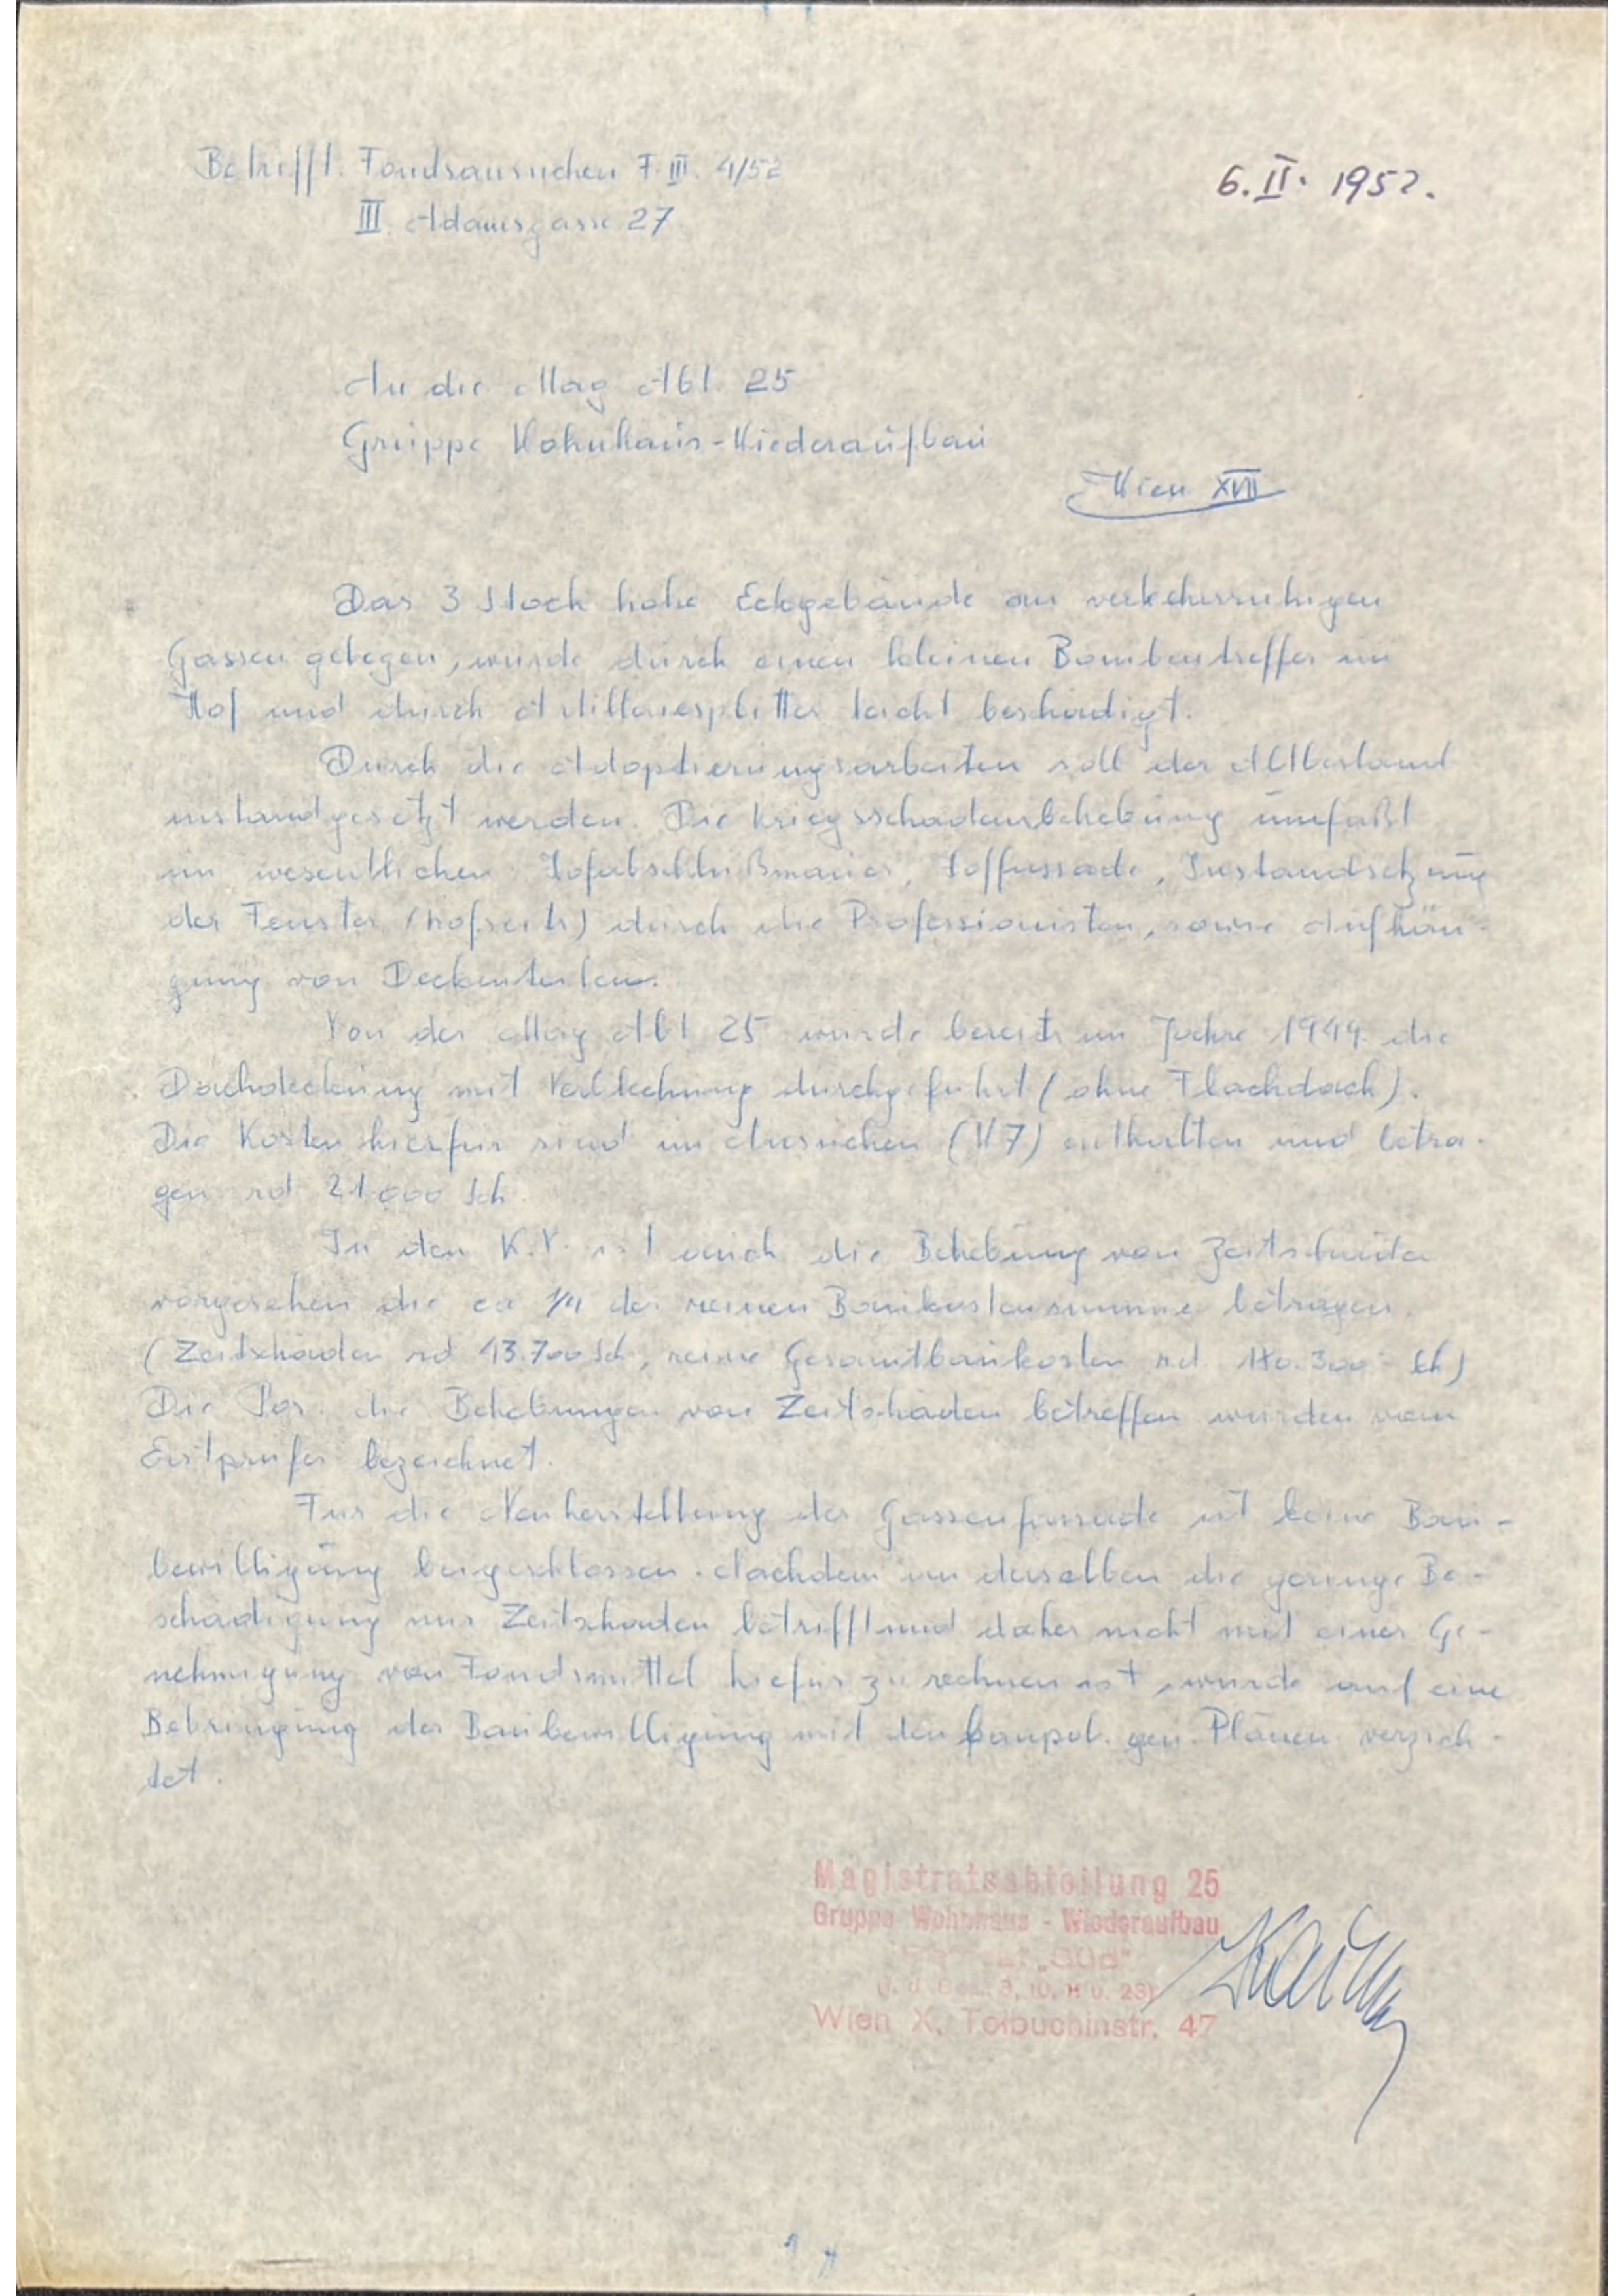 Betrifft: Fondsansuchen F. III. 4/52
6. II. 1952.
III. Adamsgasse 27
An die Mag Abt. 25
Gruppe Wohnhaus-Wiederaufbau
Wien XVII
Das 3 Stock hohe Eckgebäude an verkehrsruhigen
Gassen gelegen, wurde durch einen kleinen Bombentreffer im
Hof und durch Artilleriesplitter leicht beschädigt.
Durch die Adaptierungsarbeiten soll der Altbestand
instandgesetzt werden. Die Kriegsschadensbehebung umfaßt
im wesentlichen: Hofabschlußmauer, Hoffassade, Instandsetzung
der Fenster (hofseits) durch die Professionisten, sowie Aufhän-
gung von Deckenteilen.
Von der Mag Abt 25 wurde bereits im Jahre 1949 die
Dachdeckung mit Verblechung durchgeführt (ohne Flachdach).
Die Kosten hierfür sind im Ansuchen (W7) enthalten und betra-
gen rd. 21.000 Sch.
In den K.V. ist auch die Behebung von Zeitschäden
vorgesehen die ca 1/4 der reinen Baukostensumme betragen.
(Zeitschäden rd 43.700 Sch, reine Gesamtbaukosten rd. 180.300.- Sch)
Die Pos. die Behebungen von Zeitschäden betreffen wurden vom
Erstprüfer bezeichnet.
Für die Neuherstellung der Gassenfassade ist keine Bau-
bewilligung beigeschlossen. Nachdem an derselben die geringe Be-
schädigung nur Zeitschäden betrifft und daher nicht mit einer Ge-
nehmigung von Fondsmittel hiefür zu rechnen ist, wurde auf eine
Beibringung der Baubewilligung mit den baupol. gen. Plänen verzich-
tet.
Magistratsabteilung 25
Gruppe Wohnhaus - Wiederaufbau
„Süd"
3, 10, 11 u. 23)
Wien X, Tolbuchinstr. 47